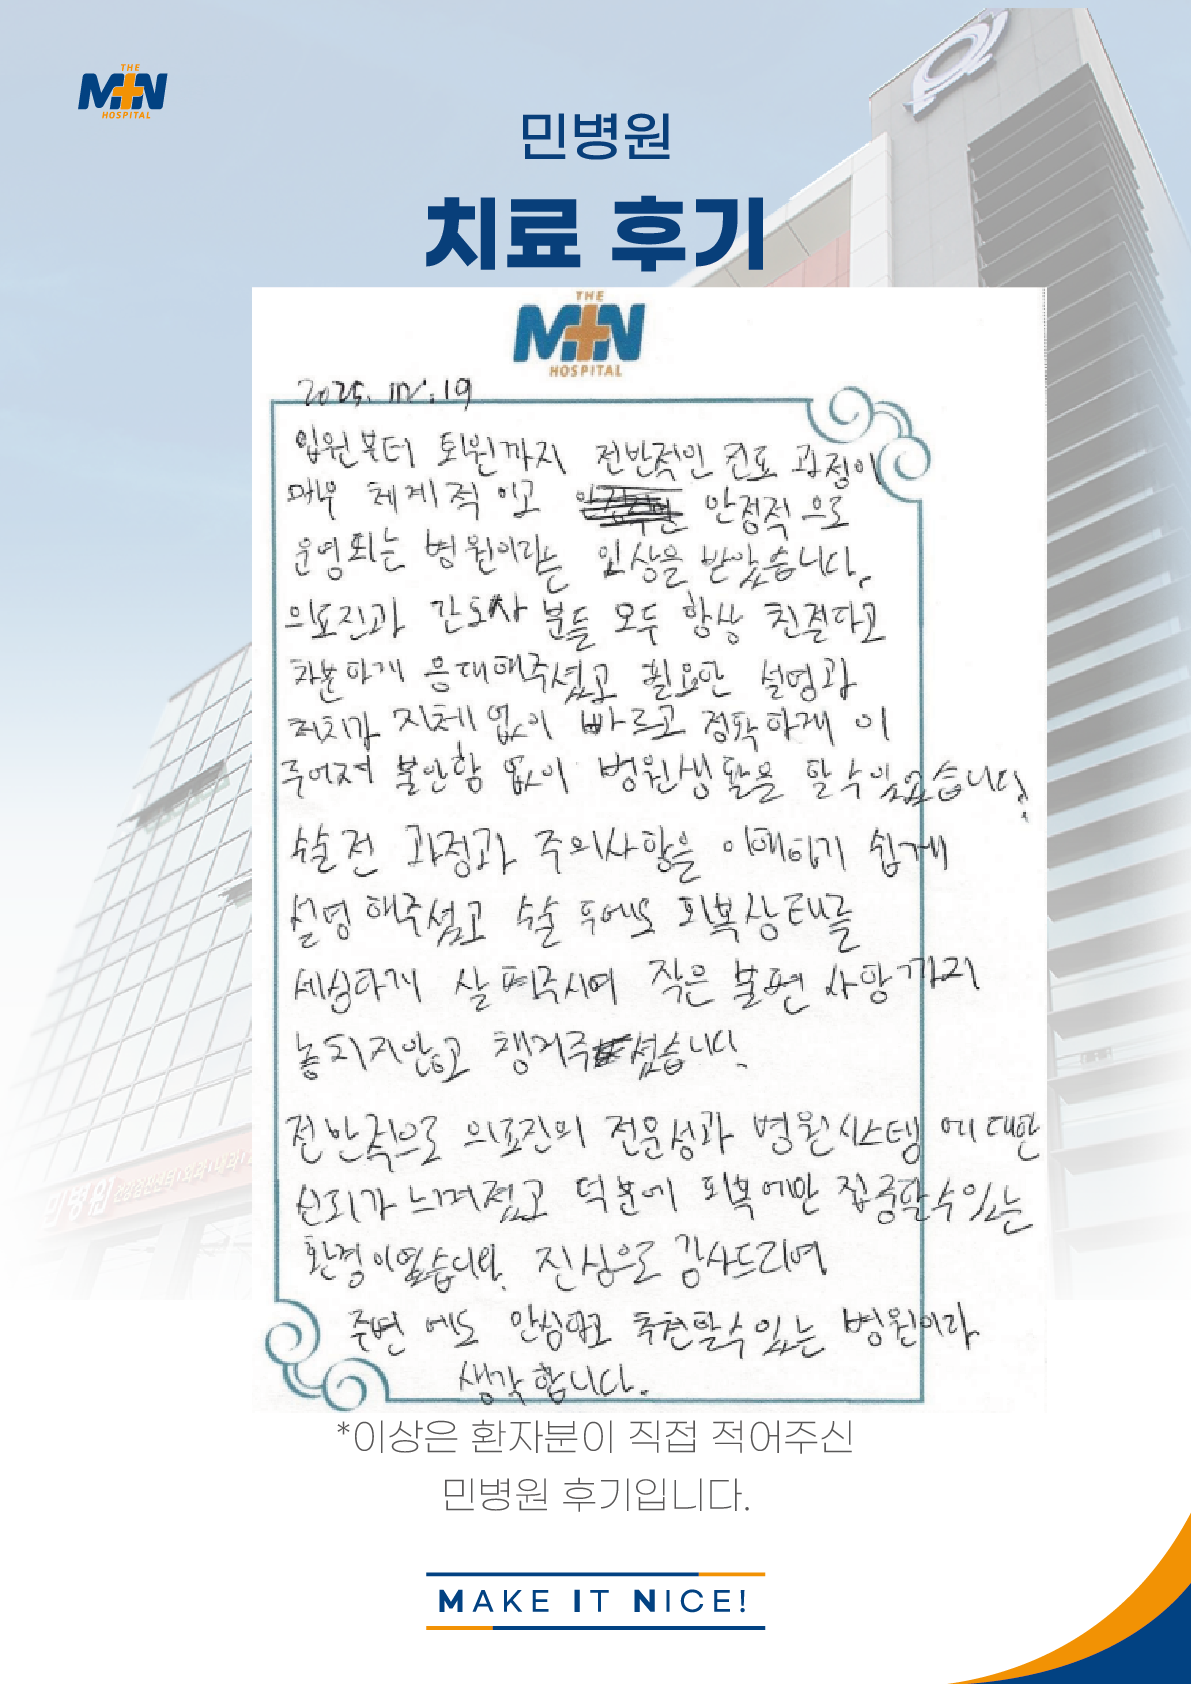 THE
MIN
HOSPITAL
민병원
치료 후기
THE
MIN
HOSPITAL
2025. 19
입원부터 퇴원까지 전반적인 진료 과정이
매우 체계적이고 안정적으로
운영되는 병원이라는 인상을 받았습니다.
의료진과 간호사 분들 모두 항상 친절하고
차분하게 응대해주셨고 필요한 설명과
처치가 지체없이 빠르고 정확하게 이
루어져 불안함 없이 병원생활을 할수있었습니다.
수술전 과정과 주의사항을 이해하기 쉽게
설명해주셨고 수술 후에도 회복상태를
세심하게 살펴주시며 작은 불편 사항까지
놓치지않고 챙겨주셨습니다.
전반적으로 의료진의 전문성과 병원시스템에대한
신뢰가 느껴졌고 덕분에 회복에만 집중할수있는
환경이였습니다. 진심으로 감사드리며
주변에도 안심하고 추천할수있는 병원이라
생각합니다.
민병원
*이상은 환자분이 직접 적어주신
민병원 후기입니다.
MAKE IT NICE!